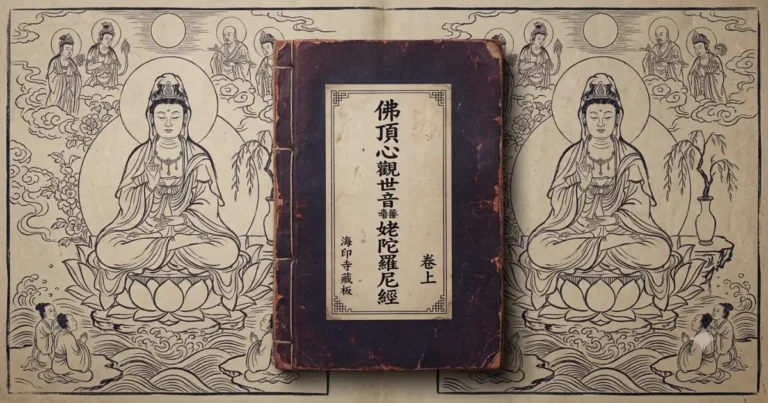 卷上
佛頂心觀世音姥陀羅尼經
海印寺藏板